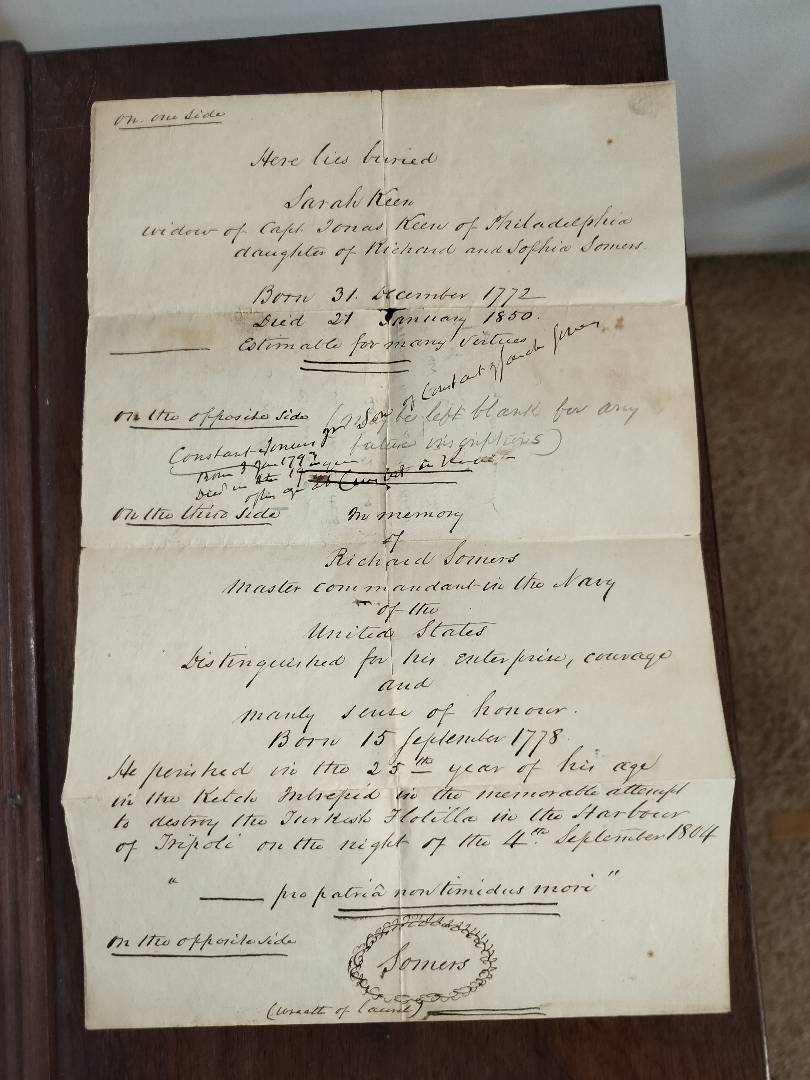 on one side
Here lies buried
Sarah Keen
widow of Capt. Jonas Keen of Philadelphia
daughter of Richard and Sophia Somers.
Born 31. December 1772
Died 21 January 1850.
Estimable for many virtues
on the opposite side (may be left blank for any
future inscriptions)
Son of Constant & Sarah
Constant
Born Jan 1797
Died in the
of his age at
on the third side In memory
of
Richard Somers
Master commandant in the Navy
of the
United States
Distinguished for his enterprise, courage
and
manly sense of honour.
Born 15 September 1778
He perished in the 25th year of his age
in the Ketch Intrepid in the memorable attempt
to destroy the Turkish Flotilla in the Harbour
of Tripoli on the night of the 4th September 1804
" pro patriâ non timidus mori "
on the opposite side
Somers
(Wreath of laurel)